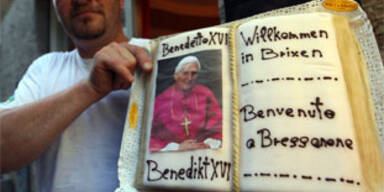 Benedetto XVI
Benedikt XVI
Willkommen
in Brixen
Benvenuto
a Bressanone